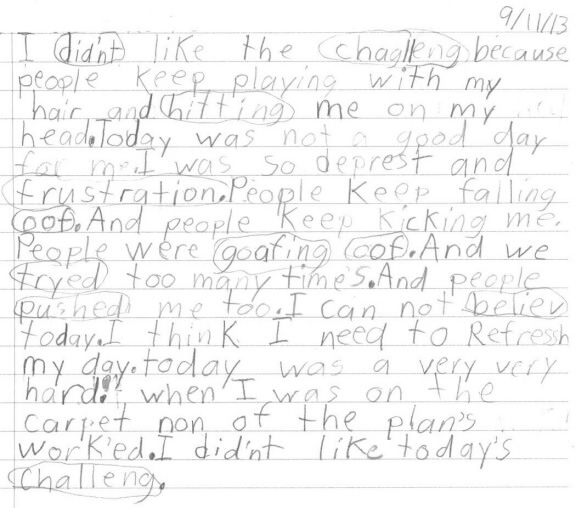 9/11/13
I didn't like the chaglleng because
people keep playing with my
hair and hitting me on my
head.Today was not a good day
for me.I was so deprest and
frustration.People keep falling
oof.And people keep kicking me.
People were goafing oof.And we
tryed too many time's.And people
pushed me too.I can not believ
today.I think I need to Refressh
my day.today was a very very
hard! when I was on the
carpet non of the plan's
work'ed.I did'nt like today's
challeng.